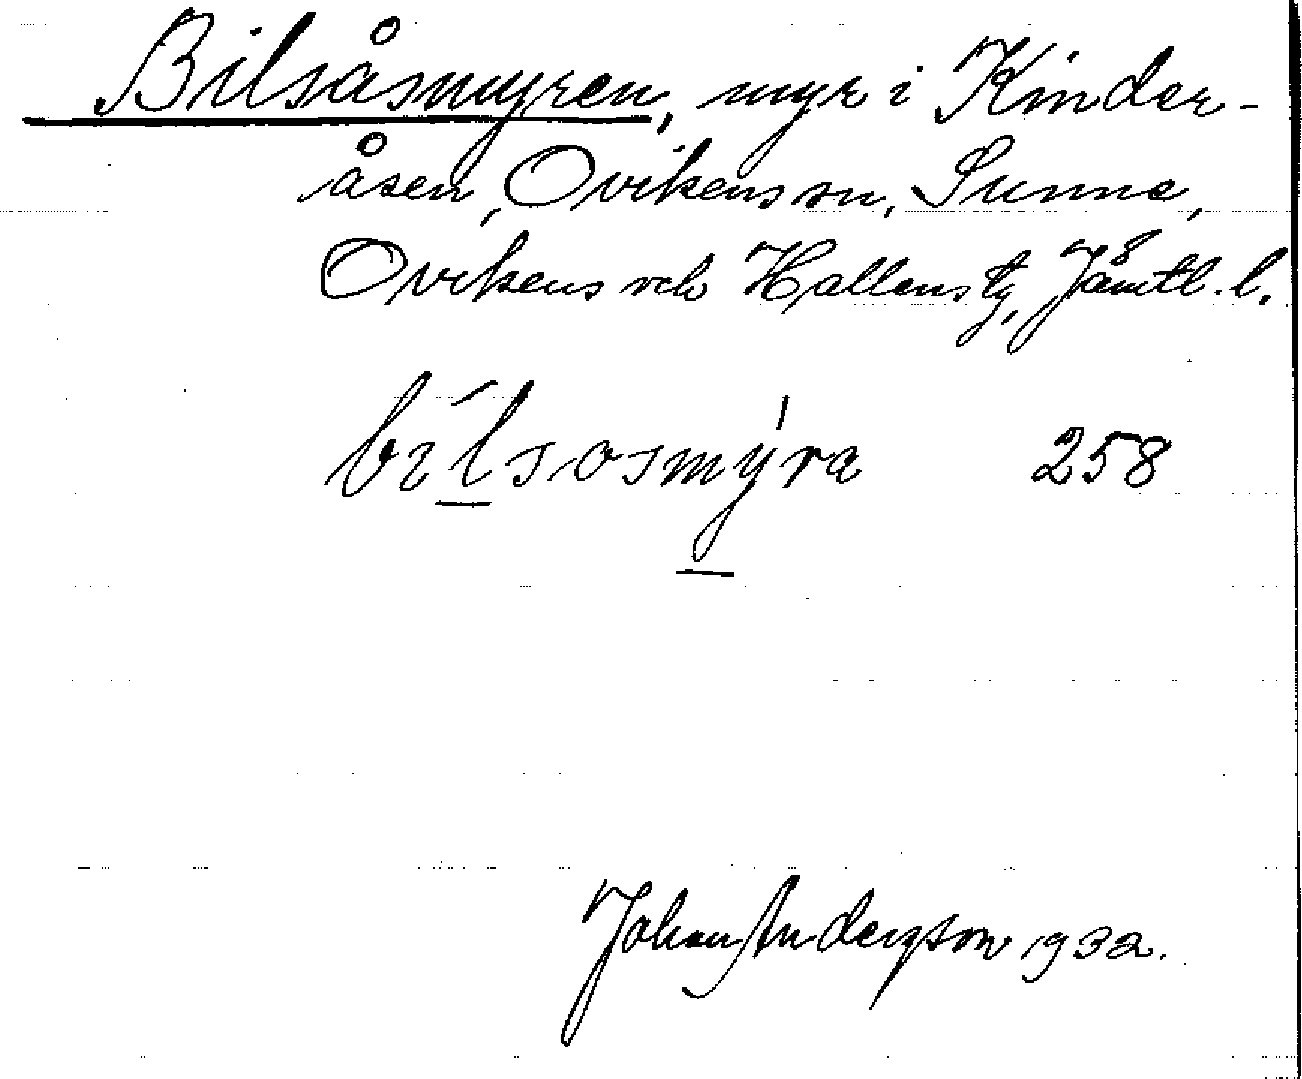 Bilsåsmyren, myr i Kinder-
åsen, Ovikens sn, Sunne,
Ovikens och Hallens tg, Jämtl. l.
bìlsosmýra 258
Johan Andersson 1932.